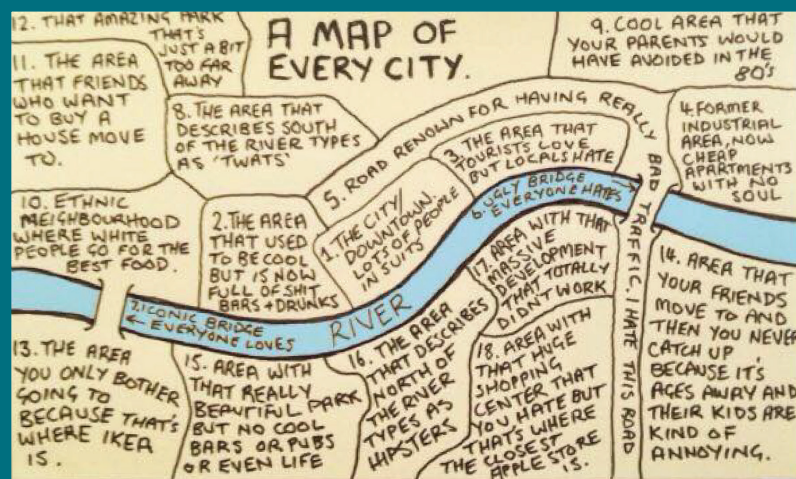 A MAP OF
EVERY CITY.
12. THAT AMAZING PARK
THAT'S
JUST A BIT
TOO FAR
AWAY
11. THE AREA
THAT FRIENDS
WHO WANT
TO BUY A
HOUSE MOVE
TO.
8. THE AREA THAT
DESCRIBES SOUTH
OF THE RIVER TYPES
AS 'TWATS'
9. COOL AREA THAT
YOUR PARENTS WOULD
HAVE AVOIDED IN THE
80's
5. ROAD RENOWN FOR HAVING REALLY BAD TRAFFIC. I HATE THIS ROAD
3. THE AREA THAT
TOURISTS LOVE
BUT LOCALS HATE
4. FORMER
INDUSTRIAL
AREA, NOW
CHEAP
APARTMENTS
WITH NO
SOUL
10. ETHNIC
NEIGHBOURHOOD
WHERE WHITE
PEOPLE GO FOR THE
BEST FOOD.
2. THE AREA
THAT USED
TO BE COOL
BUT IS NOW
FULL OF SHIT
BARS + DRUNKS
1. THE CITY/
DOWNTOWN.
LOTS OF PEOPLE
IN SUITS
6. UGLY BRIDGE
EVERYONE HATES
7. ICONIC BRIDGE
EVERYONE LOVES
RIVER
17. AREA WITH THAT
MASSIVE
DEVELOPMENT
THAT TOTALLY
DIDNT WORK
14. AREA THAT
YOUR FRIENDS
MOVE TO AND
THEN YOU NEVER
CATCH UP
BECAUSE IT'S
AGES AWAY AND
THEIR KIDS ARE
KIND OF
ANNOYING.
13. THE AREA
YOU ONLY BOTHER
GOING TO
BECAUSE THAT'S
WHERE IKEA
IS.
15. AREA WITH
THAT REALLY
BEAUTIFUL PARK
BUT NO COOL
BARS OR PUBS
OR EVEN LIFE
16. THE AREA
THAT DESCRIBES
NORTH OF
THE RIVER
TYPES AS
HIPSTERS
18. AREA WITH
THAT HUGE
SHOPPING
CENTER THAT
YOU HATE BUT
THAT'S WHERE
THE CLOSEST
APPLE STORE
IS.